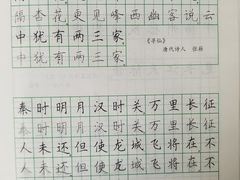 隔杏花更见峰西幽客说云
中犹有两三家
中犹有两三家
《寻仙》
唐代诗人 张籍
秦时明月汉时关万里长征
秦时明月汉时关万里长征
人未还但使龙城飞将在不
人未还但使龙城飞将在不